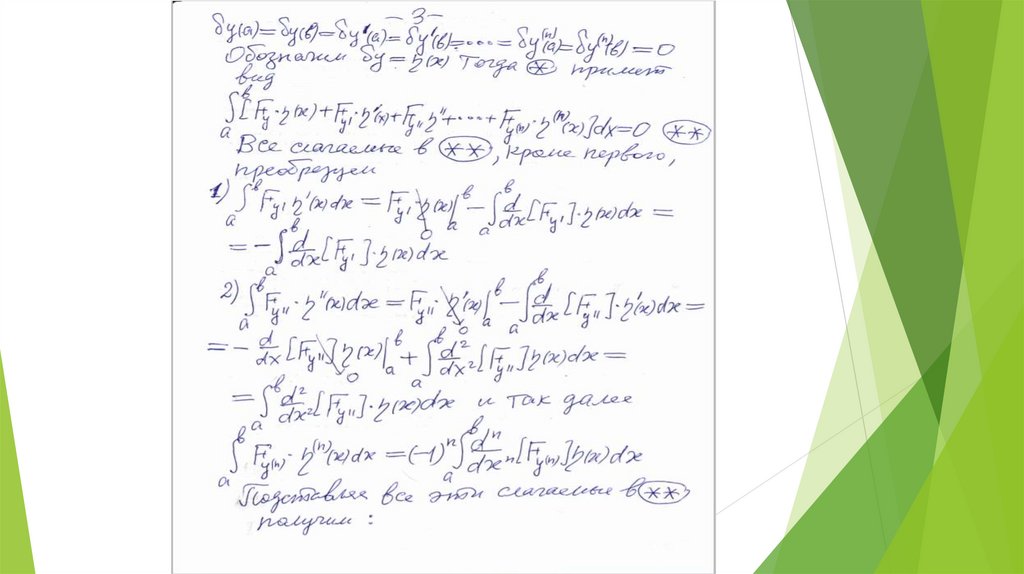 – 3 –
δy(a)=δy(в)=δy'(a)=δy'(в)=...=δy⁽ⁿ⁾(a)=δy⁽ⁿ⁾(в)=0
Обозначим δy=η(x) Тогда (*) примет
вид
∫ₐᵇ[F_y·η(x)+F_y'·η'(x)+F_y''η''+...+F_y⁽ⁿ⁾·η⁽ⁿ⁾(x)]dx=0 (**)
Все слагаемые в (**), кроме первого,
преобразуем
1) ∫ₐᵇ F_y' η'(x)dx = F_y'·η(x)|ₐᵇ – ∫ₐᵇ d/dx[F_y']·η(x)dx =
0
= – ∫ₐᵇ d/dx[F_y']·η(x)dx
2) ∫ₐᵇ F_y''·η''(x)dx = F_y''·η'(x)|ₐᵇ – ∫ₐᵇ d/dx[F_y'']·η'(x)dx =
0
= – d/dx[F_y'']η(x)|ₐᵇ + ∫ₐᵇ d²/dx²[F_y'']η(x)dx =
0
= ∫ₐᵇ d²/dx²[F_y'']·η(x)dx и так далее
∫ₐᵇ F_y⁽ⁿ⁾·η⁽ⁿ⁾(x)dx = (–1)ⁿ ∫ₐᵇ dⁿ/dxⁿ[F_y⁽ⁿ⁾]η(x)dx
Подставляя все эти слагаемые в (**)
получим :